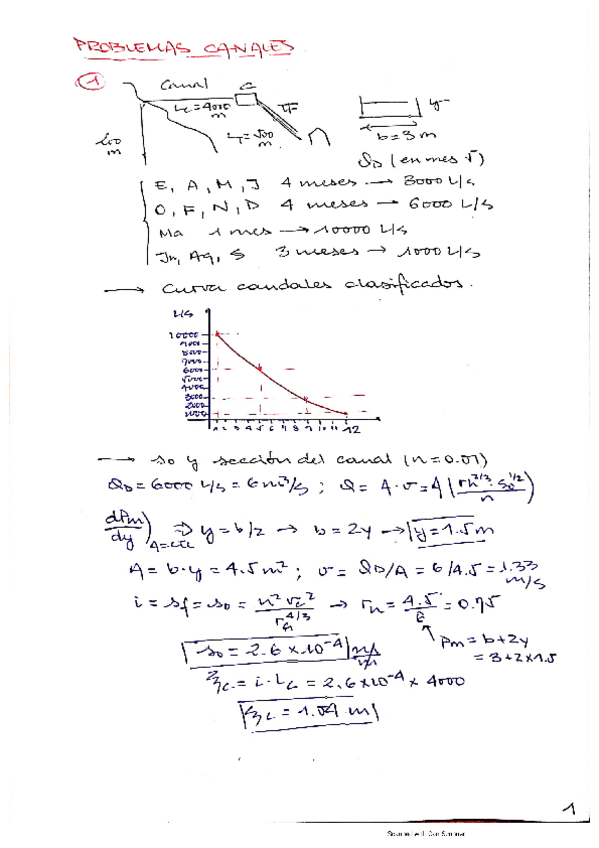 PROBLEMAS CANALES
1
Canal C
Lc=4000 m
LT=500 m
200 m
y
b=3m
QD (en mes 5)
E, A, M, J 4 meses → 3000 L/s
O, F, N, D 4 meses → 6000 L/s
Ma 1 mes → 10000 L/s
Jn, Ag, S 3 meses → 1000 L/s
→ Curva caudales clasificados.
L/s
10000
9000
8000
7000
6000
5000
4000
3000
2000
1000
1 2 3 4 5 6 7 8 9 10 11 12
→ so y sección del canal (n=0.01)
QD = 6000 L/s = 6 m³/s ; Q = A·v = A (rh^2/3 · so^1/2 / n)
dPm/dy) A=cte ⇒ y = b/2 → b = 2y → y = 1.5 m
A = b·y = 4.5 m² ; v = QD/A = 6/4.5 = 1.33 m/s
i = sf = so = n² vc² / rh^4/3 → rh = 4.5/6 = 0.75
Pm = b+2y
= 3+2×1.5
so = 2.6 × 10⁻⁴ m/m
= i·Lc = 2.6 × 10⁻⁴ × 4000
= 1.04 m
1